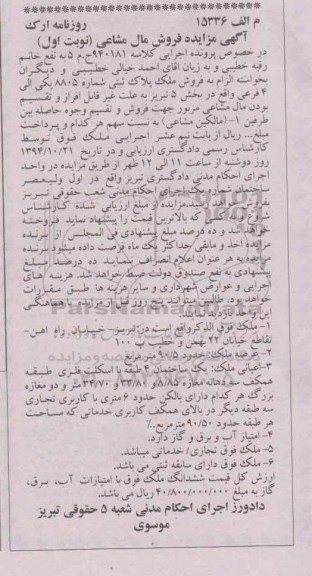 م الف ۱۵۳۳۶ روزنامه ارک
آگهی مزایده فروش مال مشاعی (نوبت اول)
در خصوص پرونده اجرایی کلاسه ۹۴۰۱۸۱ج.م ۵ به نفع خانم
رقیه خطیبی و به زیان اقای احمد خیالی خطیبی و دیگران
بخواسته الزام به فروش ملک پلاک ثبتی شماره ۸۸۰۵ یکی الی
۴ فرعی واقع در بخش ۵ تبریز به علت غیر قابل افراز و تقسیم
بودن مال مشاعی مزبور جهت فروش و تقیم وجوه حاصله بین
طرفین ۱- (مالکین مشاعی) به نسبت سهم هر کدام و پرداخت
مبلغ... ریال از بابت نیم عشر اجرایی ملک فوق توسط
کارشناس رسمی دادگستری ارزیابی و در تاریخ ۱۳۹۴/۱۰/۲۱
روز دوشنبه از ساعت ۱۱ الی ۱۲ ظهر از طریق مزایده در واحد
اجرای احکام مدنی دادگستری تبریز واقع در اول ولیعصر
ساختمان شماره یک اجرای احکام مدنی شعب حقوقی تبریز
بفروش خواهد رسید.مزایده از مبلغ ارزیابی شده کارشناس
شروع و به کسی که بالاترین قیمت را پیشنهاد نماید فروخته
خواهد شد و ده درصد مبلغ پیشنهادی فی المجلس از برنده
مزایده اخذ و مابقی حداکثر یک ماه فرصت داده میشود برنده
مزایده به هر عنوان اعلام انصراف نماید ده درصد مبلغ
پیشنهادی به نفع صندوق دولت ضبط خواهد شد. هزینه های
اجرایی و عوارض شهرداری و سایر هزینه ها طبق مقررات
خواهد بود. طالبین میتوانند پنج روز قبل از مزایده با هماهنگی
این واحد بازدید نمایند.
۱- ملک فوق الذکر واقع است در تبریز- خیابان راه اهن-
تقاطع خیابان ۲۲ بهمن و خطیب پ ۱۰۰
۲- عرصه ملک: حدود ۹۰/۵ متر مربع
۳-اعیانی ملک: یک ساختمان ۴ طبقه با اسکلت فلزی طبقه
همکف سه دهانه مغازه ۸/۸۵ و ۳۳/۸۱ و ۳۴/۷۰ متر و دو مغازه
بزرگ هر کدام دارای بالکن حدود ۶ متری با کاربری تجاری
سه طبقه دیگر در بالای همکف کاربری خدماتی که مساحت
هر طبقه حدود ۹۰/۵۰ مترمربع.٪
۴- امتیاز آب و برق و گاز دارد.
۵- ملک فوق تجاری/ خدماتی میباشد.
۶- ملک فوق دارای سابقه ثبتی می باشد.
ارزش کل قیمت ششدانگ ملک فوق با امتیازات آب، برق،
گاز به مبلغ ۴۰/۸۰۰/۰۰۰/۰۰۰ ریال می باشد.
دادورز اجرای احکام مدنی شعبه ۵ حقوقی تبریز
موسوی